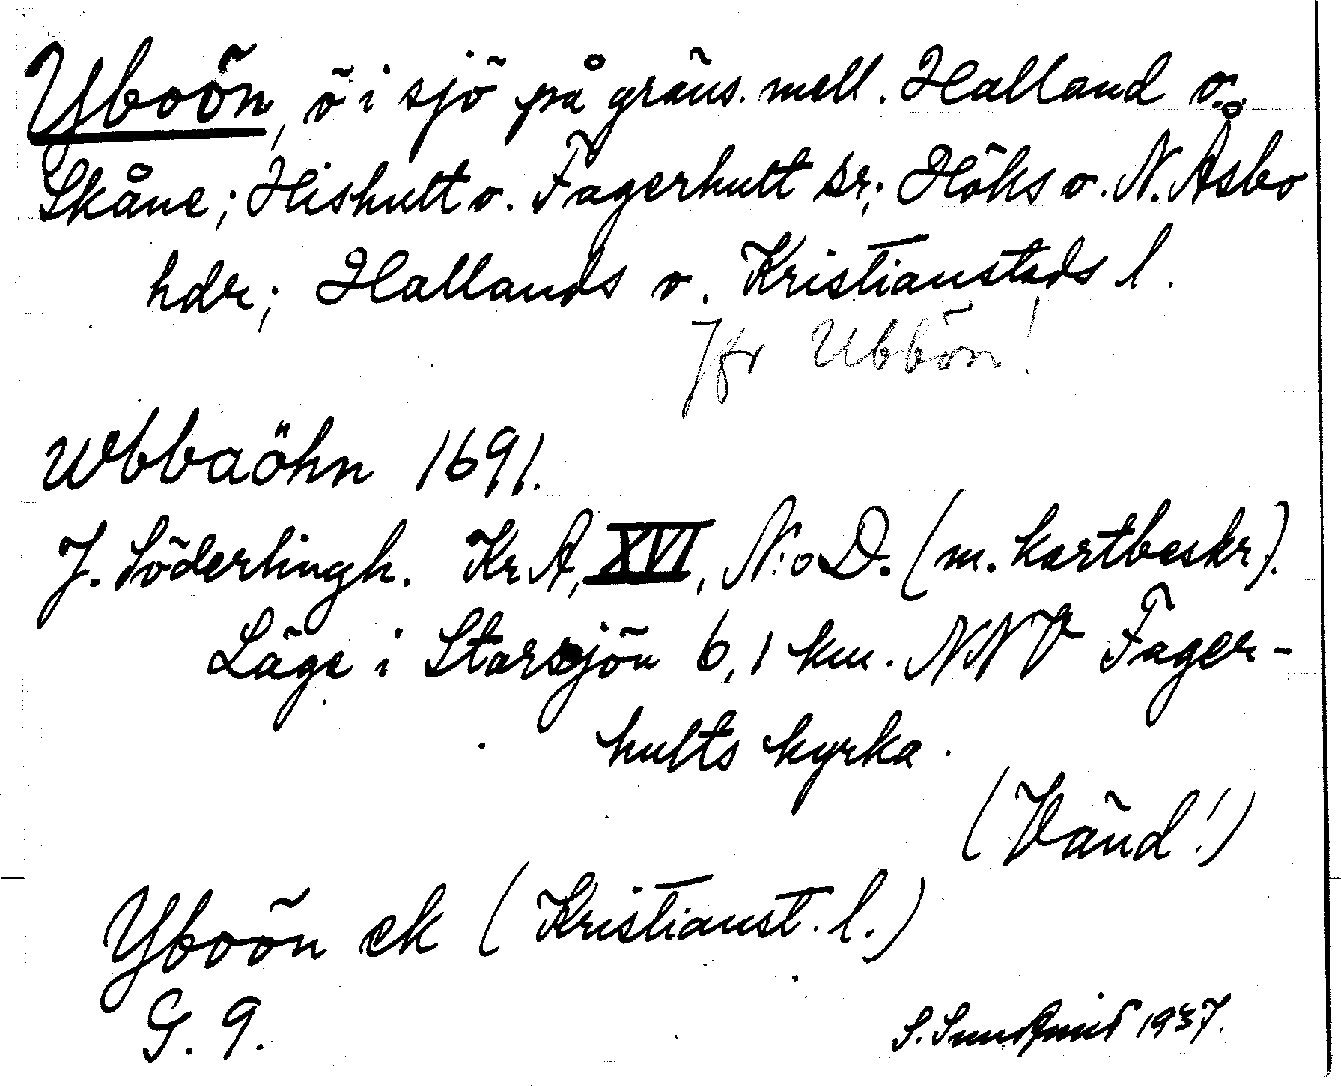 Yboön, ö i sjö på gräns. mell. Halland o.
Skåne; Hishult o. Fagerhult sr; Höks o. N. Åsbo
hdr; Hallands o. Kristianstads l.
Jfr Ubbön!
Wbbaöhn 1691.
J. Söderlingh. KrA, XVI, N:o D. (m. kartbeskr.).
Läge i Storsjön 6,1 km. NNV Fager-
hults kyrka.
(Vänd!)
Yboön ek (Kristianst. l.)
G. 9.
S. Sundqvist 1937.